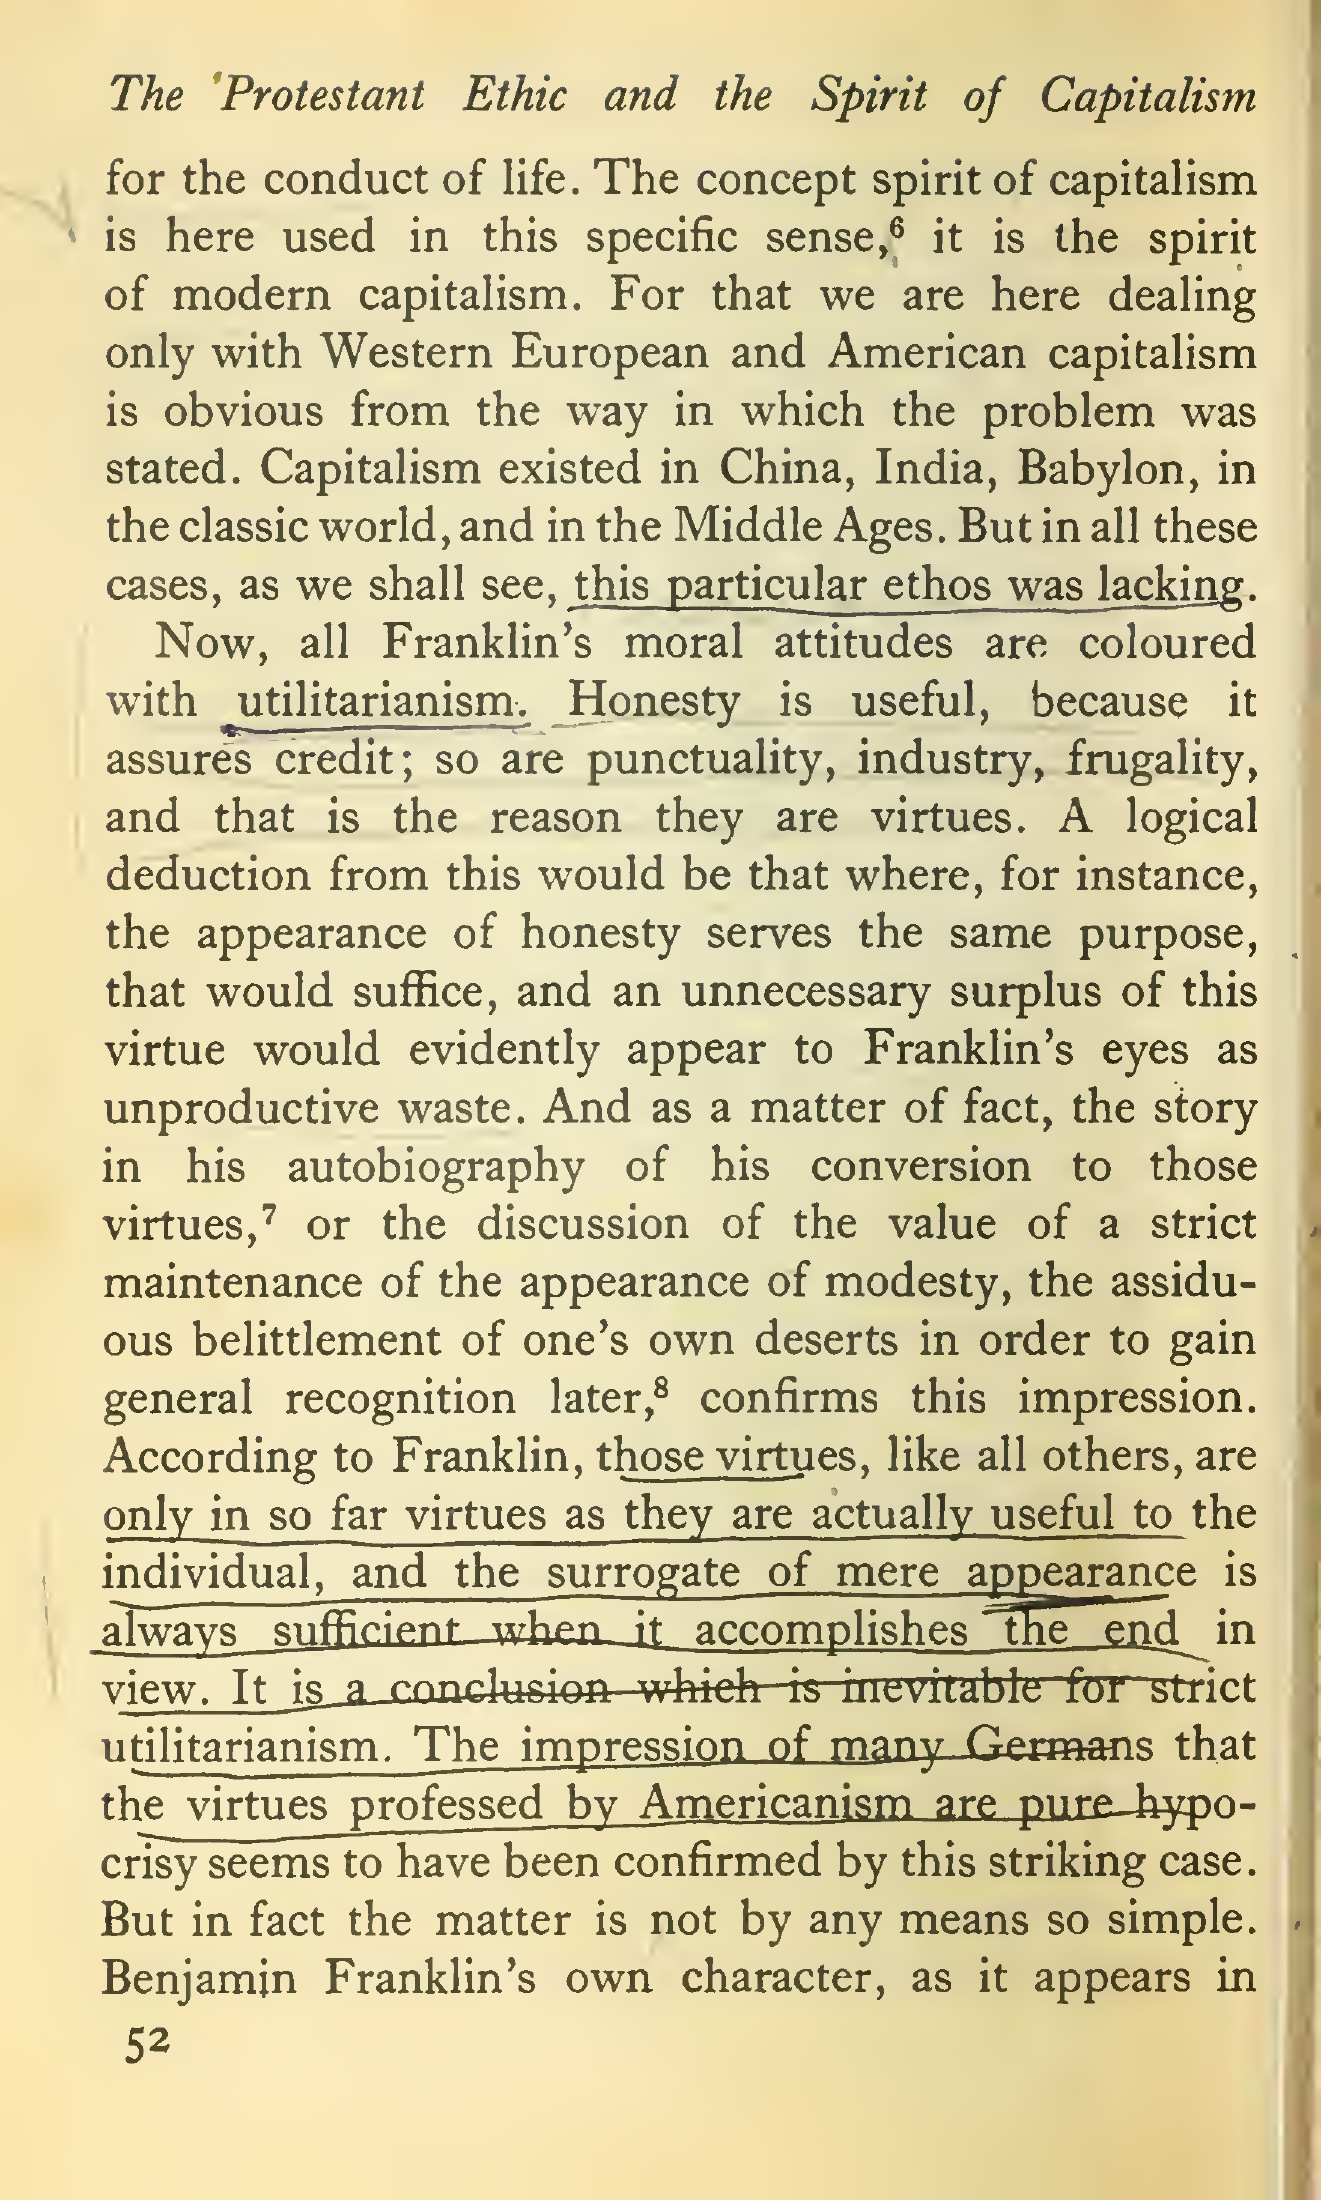 The Protestant Ethic and the Spirit of Capitalism
for the conduct of life. The concept spirit of capitalism
is here used in this specific sense,⁶ it is the spirit
of modern capitalism. For that we are here dealing
only with Western European and American capitalism
is obvious from the way in which the problem was
stated. Capitalism existed in China, India, Babylon, in
the classic world, and in the Middle Ages. But in all these
cases, as we shall see, this particular ethos was lacking.
Now, all Franklin's moral attitudes are coloured
with utilitarianism. Honesty is useful, because it
assures credit; so are punctuality, industry, frugality,
and that is the reason they are virtues. A logical
deduction from this would be that where, for instance,
the appearance of honesty serves the same purpose,
that would suffice, and an unnecessary surplus of this
virtue would evidently appear to Franklin's eyes as
unproductive waste. And as a matter of fact, the story
in his autobiography of his conversion to those
virtues,⁷ or the discussion of the value of a strict
maintenance of the appearance of modesty, the assidu-
ous belittlement of one's own deserts in order to gain
general recognition later,⁸ confirms this impression.
According to Franklin, those virtues, like all others, are
only in so far virtues as they are actually useful to the
individual, and the surrogate of mere appearance is
always sufficient when it accomplishes the end in
view. It is a conclusion which is inevitable for strict
utilitarianism. The impression of many Germans that
the virtues professed by Americanism are pure hypo-
crisy seems to have been confirmed by this striking case.
But in fact the matter is not by any means so simple.
Benjamin Franklin's own character, as it appears in
52